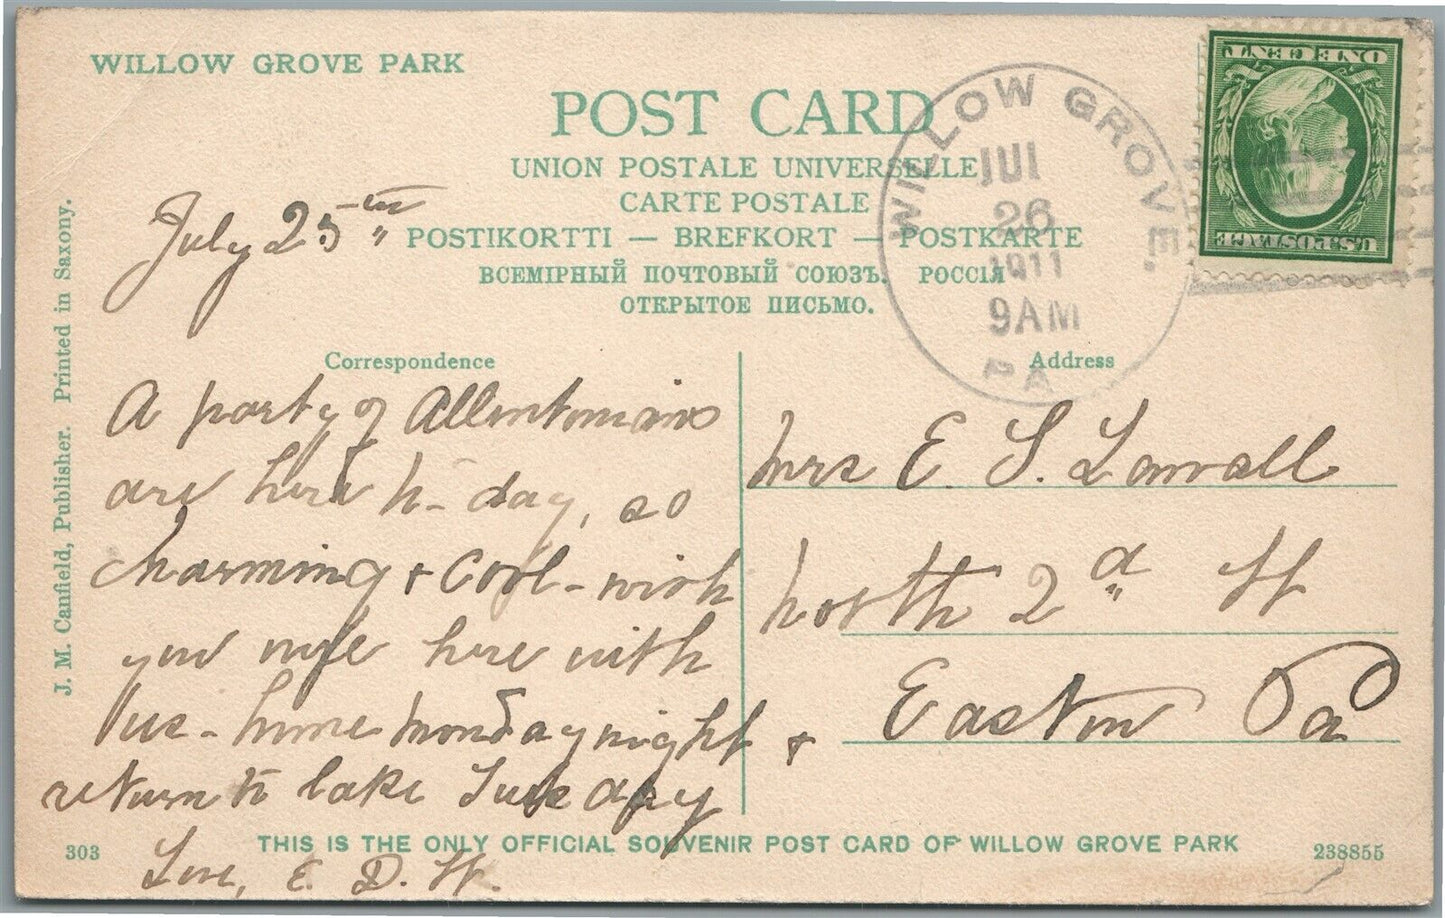 WILLOW GROVE PARK
POST CARD
UNION POSTALE UNIVERSELLE
CARTE POSTALE
POSTIKORTTI — BREFKORT — POSTKARTE
ВСЕМІРНЫЙ ПОЧТОВЫЙ СОЮЗЪ. РОССІЯ
ОТКРЫТОЕ ПИСЬМО.
WILLOW GROVE.
JUL
26
1911
9AM
PA
ONE CENT
U.S. POSTAGE
J. M. Canfield, Publisher. Printed in Saxony.
July 25th
Correspondence
A party of Allentonians
are here to-day, so
charming + cool - wish
you were here with
us - home Monday night +
return to lake Tuesday
Love, E. D. H.
Address
Mrs E. S. Lawall
North 2d St
Easton Pa
303
THIS IS THE ONLY OFFICIAL SOUVENIR POST CARD OF WILLOW GROVE PARK
238855